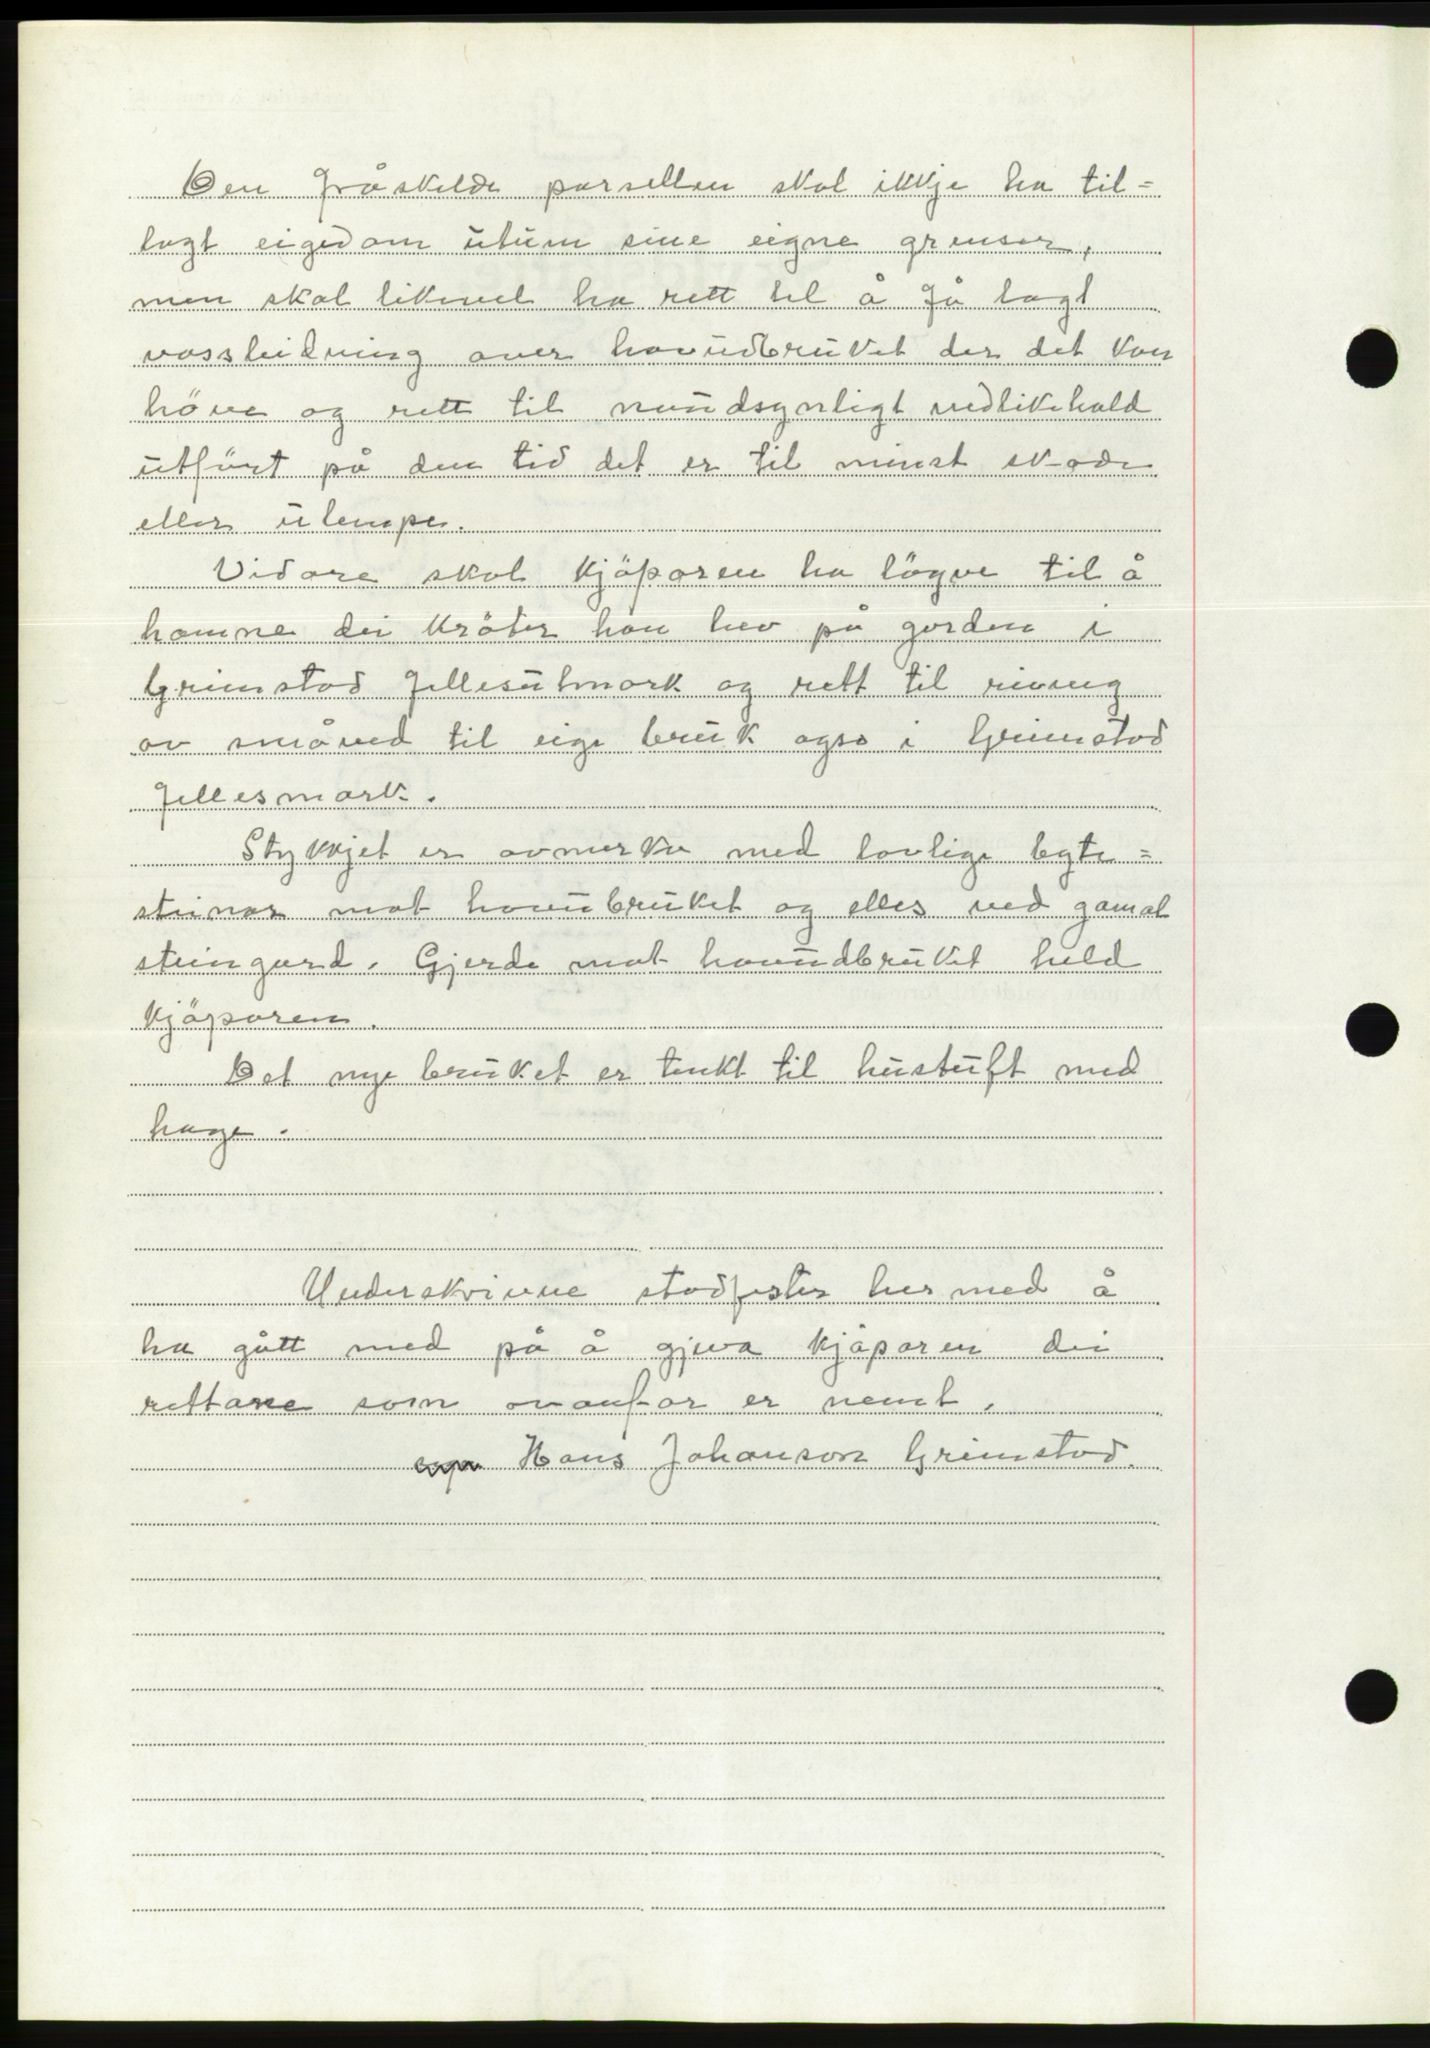 Den fråskilde parsellen skal ikkje ha til=
lagt eigedom utum sine eigne grenser,
men skal likevel ha rett til å få lagt
vassleidning over hovudbruket der det kan
höve og rett til naudsynligt vedlikehald
utfört på den tid det er til minst skade
eller ulempe.
Vidare skal kjöparen ha löyve til å
hamne dei kröter han hev på garden i
Grimstad fellesutmark og rett til rivning
av småved til eige bruk ogso i Grimstad
fellesmark.
Stykkjet er avmerka med lovlige byte=
steinar mot hovubruket og elles ved gamal
steingard. Gjerde mot hovudbruket held
kjöparen.
Det nye bruket er tenkt til hustuft med
hage.
Underskrivne stadfester hermed å
ha gått med på å gjeva kjöparen dei
rettane som ovanfor er nemt.
Hans Johanson Grimstad.